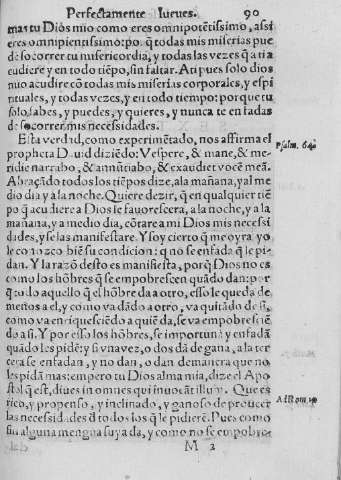 Perfectamente Iueves. 90
mas tu Dios mio como eres omnipotẽtissimo, assi
eres omnipientissimo: po q̃ todas mis miserias pue
de socorrer tu misericordia, y todas las vezes q̃ a ti a
cudiere y en todo tiẽpo, sin faltar. A ti pues solo dios
mio acudire cõ todas mis miserias corporales, y espi
rituales, y todas vezes, y en todo tiempo: porque tu
solo, sabes, y puedes, y quieres, y nunca te enfadas
de socorrer mis necessidades.
Esta verdad, como experimẽtado, nos affirma el
propheta Dauid diziẽdo: Vespere, & mane, & me-
ridie narrabo, & annũtiabo, & exaudiet vocẽ meã.
Psalm. 54.
Abraçãdo todos los tiẽpos dize, a la mañana, y al me
dio dia y a la noche. Quiere dezir, q̃ en qualquier tiẽ
po q̃ acudiere a Dios le fauorescera, a la noche, y a la
mañana, y a medio dia, cõtare a mi Dios mis necessi
dades, y se las manifestare. Y soy cierto q̃ me oyra yo
le conozco biẽ su condicion: q̃ no se enfada q̃ le pi-
dan. Y la razõ desto es manifiesta, porq̃ Dios no es
como los hõbres q̃ se empobrescen quãdo dan: por
q̃ todo aquello q̃ el hõbre da a otro, esso le queda de
menos a el, y como va dãdo a otro, va quitãdo de si,
como va enriquesciẽdo a quiẽ da, se va empobresciẽ
do a si. Y por esso los hõbres, se importunã y enfadã
quãdo les pidẽ: y si vna vez, o dos dã de gana, a la ter
cera se enfadan, y no dan, o dan de manera que no
les pidã mas: empero tu Dios alma mia, dize el Apo
stol q̃ est, diues in omnes qui inuocãt illum. Que es
Ad Rom. 10
rico, y propenso, y inclinado, y ganoso de proueer
las necessidades d̃ todos los q̃ le pidierẽ. Pues como
sin alguna mengua suya da, y como no se empobre-
M 2